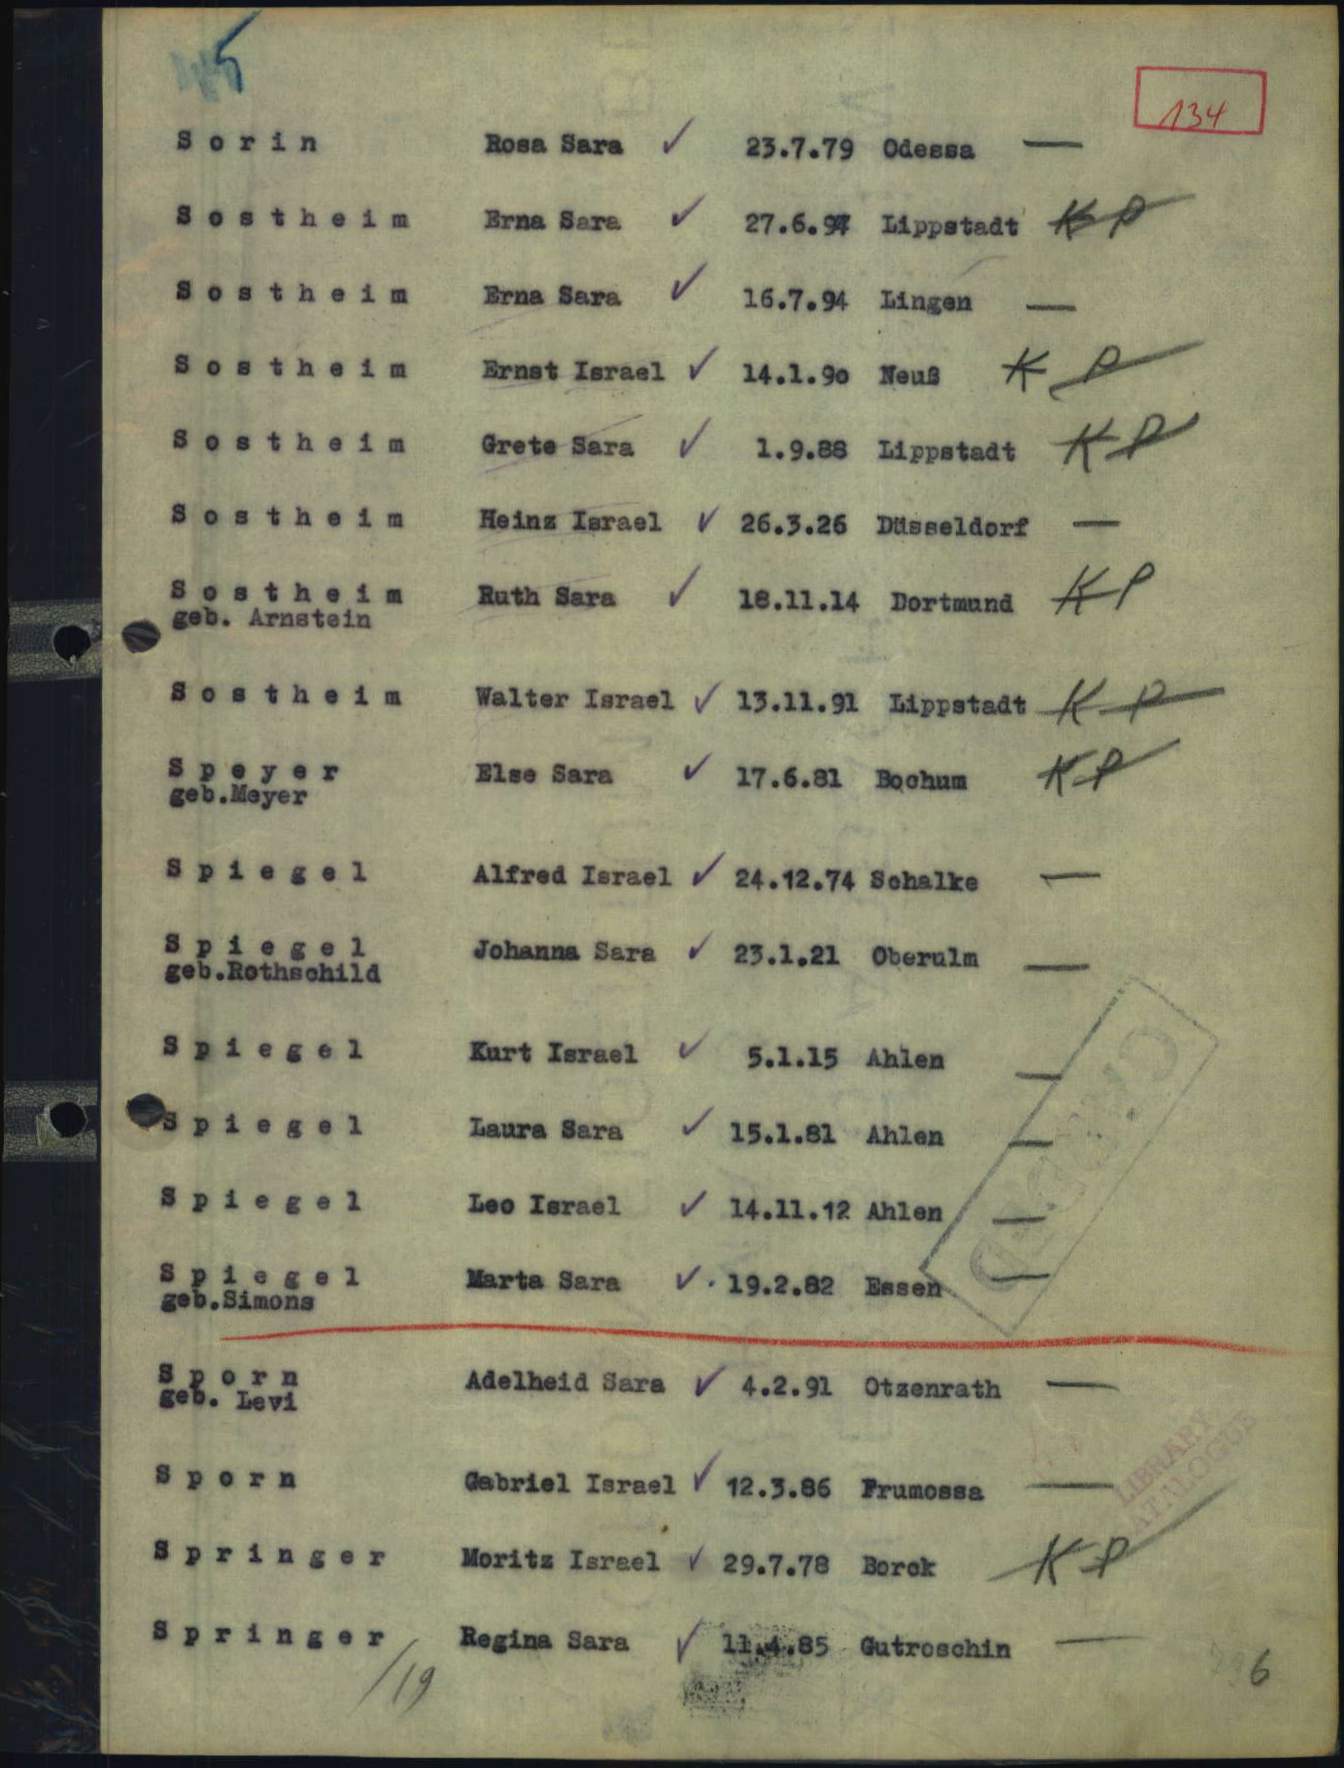 5
134
Sorin Rosa Sara ✓ 23.7.79 Odessa —
Sostheim Erna Sara ✓ 27.6.97 Lippstadt KP
Sostheim Erna Sara ✓ 16.7.94 Lingen —
Sostheim Ernst Israel ✓ 14.1.9o Neuß KP
Sostheim Grete Sara ✓ 1.9.88 Lippstadt KP
Sostheim Heinz Israel ✓ 26.3.26 Düsseldorf —
Sostheim Ruth Sara ✓ 18.11.14 Dortmund KP
geb. Arnstein
Sostheim Walter Israel ✓ 13.11.91 Lippstadt KP
Speyer Else Sara ✓ 17.6.81 Bochum KP
geb.Meyer
Spiegel Alfred Israel ✓ 24.12.74 Schalke —
Spiegel Johanna Sara ✓ 23.1.21 Oberulm —
geb.Rothschild
Spiegel Kurt Israel ✓ 5.1.15 Ahlen —
Spiegel Laura Sara ✓ 15.1.81 Ahlen —
Spiegel Leo Israel ✓ 14.11.12 Ahlen —
Spiegel Marta Sara ✓ 19.2.82 Essen —
geb.Simons
Sporn Adelheid Sara ✓ 4.2.91 Otzenrath —
geb. Levi
Sporn Gabriel Israel ✓ 12.3.86 Frumossa —
LIBRARY
ATALOGUE
Springer Moritz Israel ✓ 29.7.78 Borck KP
Springer Regina Sara ✓ 11.4.85 Gutroschin —
/19
6